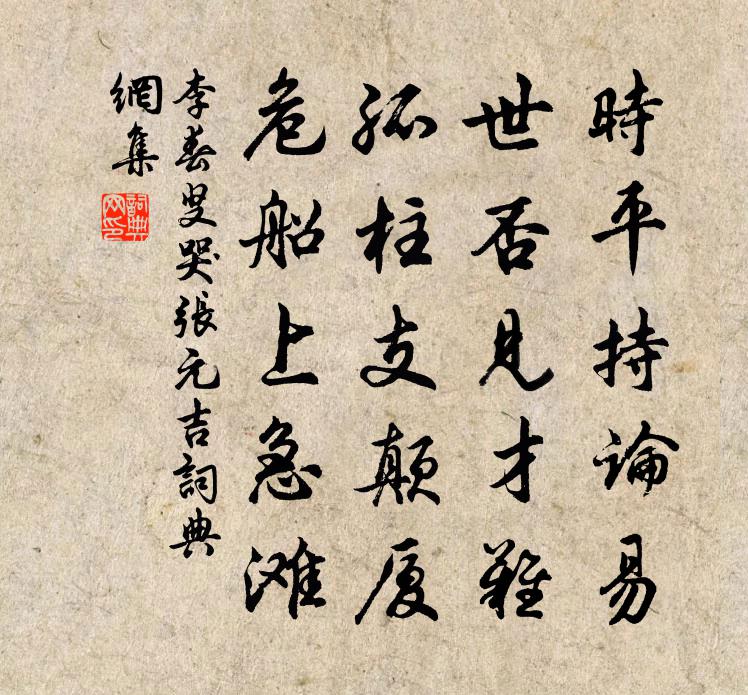 時平持論易
世否見才難
孤柱支颠厦
危船上急滩
李春叟哭張元吉詞典
網集
詞典
网印